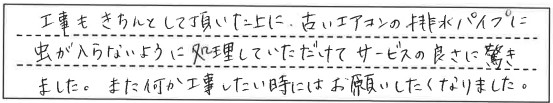 工事もきちんとして頂いた上に、古いエアコンの排水パイプに
虫が入らないように処理していただけてサービスの良さに驚き
ました。また何か工事したい時にはお願いしたくなりました。